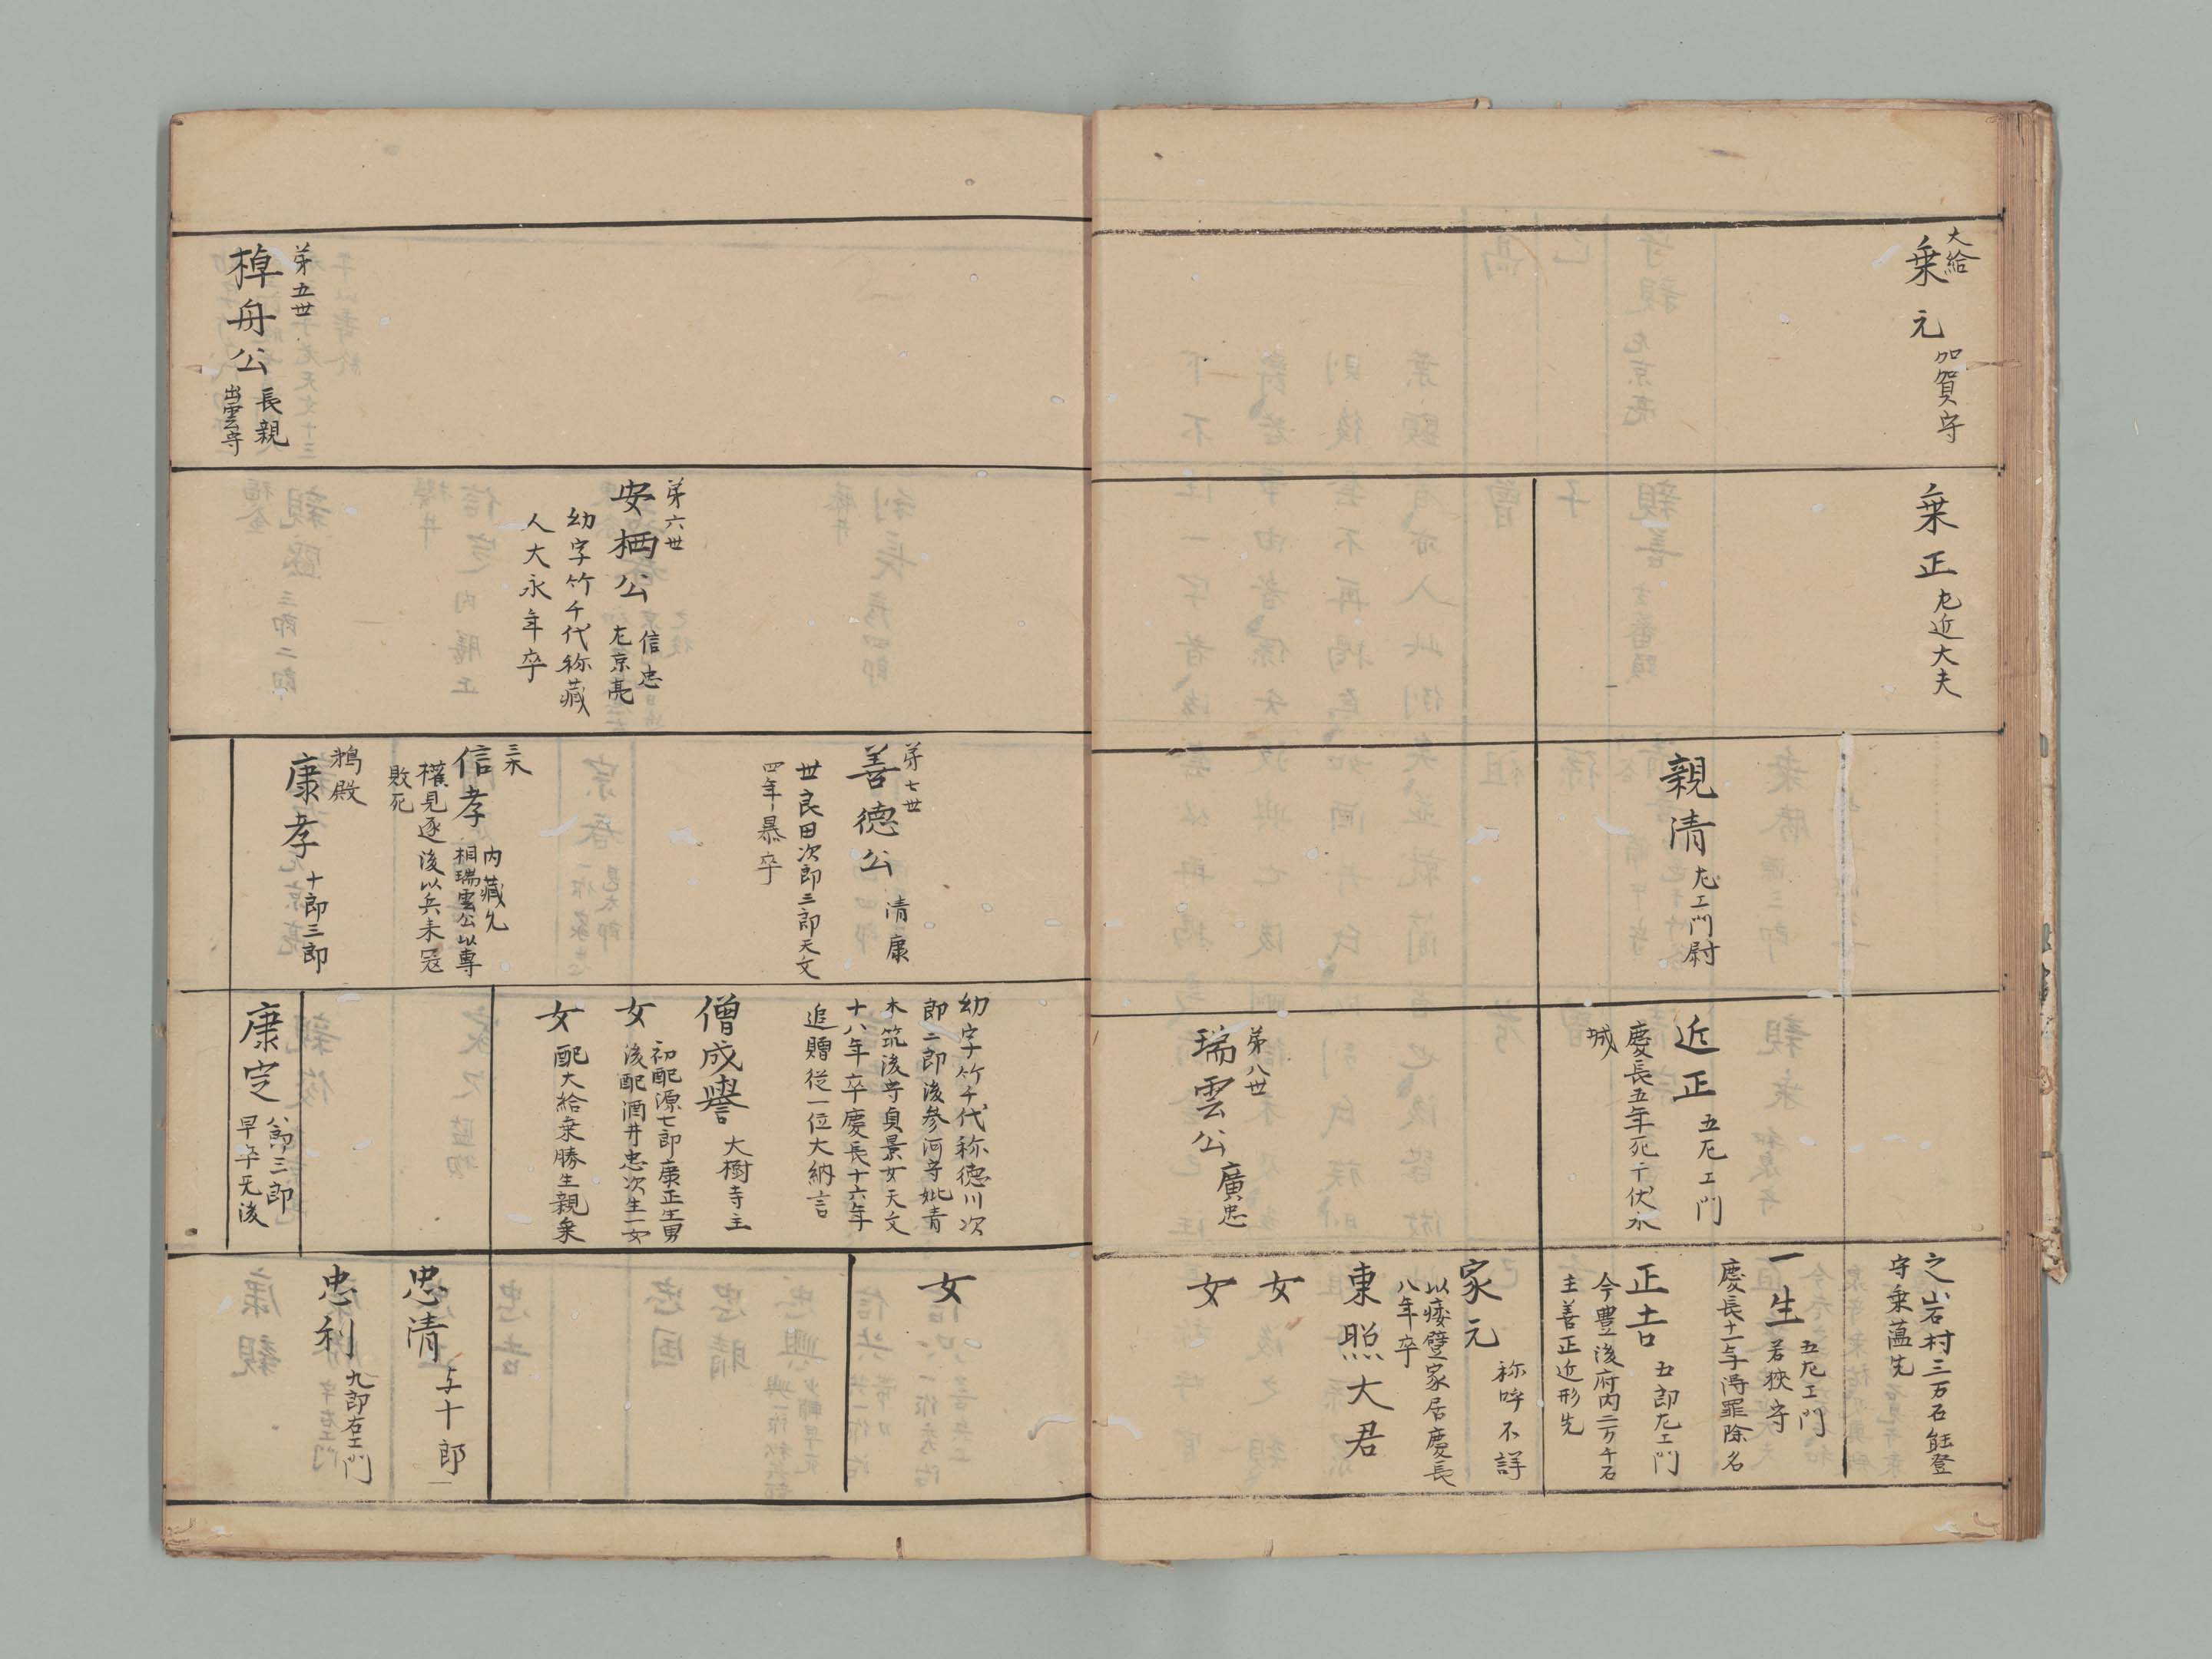 大給
乗元
加賀守
乗正
左近大夫
親清
左エ門尉
近正
五左エ門
慶長五年死于伏水
城
之岩村三万石能登
守乗薀先
一生
五左エ門
若狭守
慶長十一年得罪除名
正吉
五郎左エ門
今豊後府内二万千石
主善正近形先
第八世
瑞雲公
廣忠
家元
称 不詳
以痿躄家居慶長
八年卒
東照大君
女
女
第五世
棹舟公
長親
出雲守
第六世
安栖公
信忠
左京亮
幼字竹千代称藏
人大永年卒
第七世
善徳公
清康
世良田次郎三郎天文
四年暴卒
三木
信孝
内藏允
相瑞雲公以専
権見逐後以兵未冠
敗死
鵜殿
康孝
十郎三郎
幼字竹千代称徳川次
郎二郎後参河守妣青
木筑後守貞景女天文
十八年卒慶長十六年
追贈従一位大納言
僧成譽
大樹寺主
女
初配源七郎康正生男
後配酒井忠次生一女
女
配大給乗勝生親乗
康定
八郎三郎
早卒无後
女
忠清
与十郎
忠利
九郎右エ門